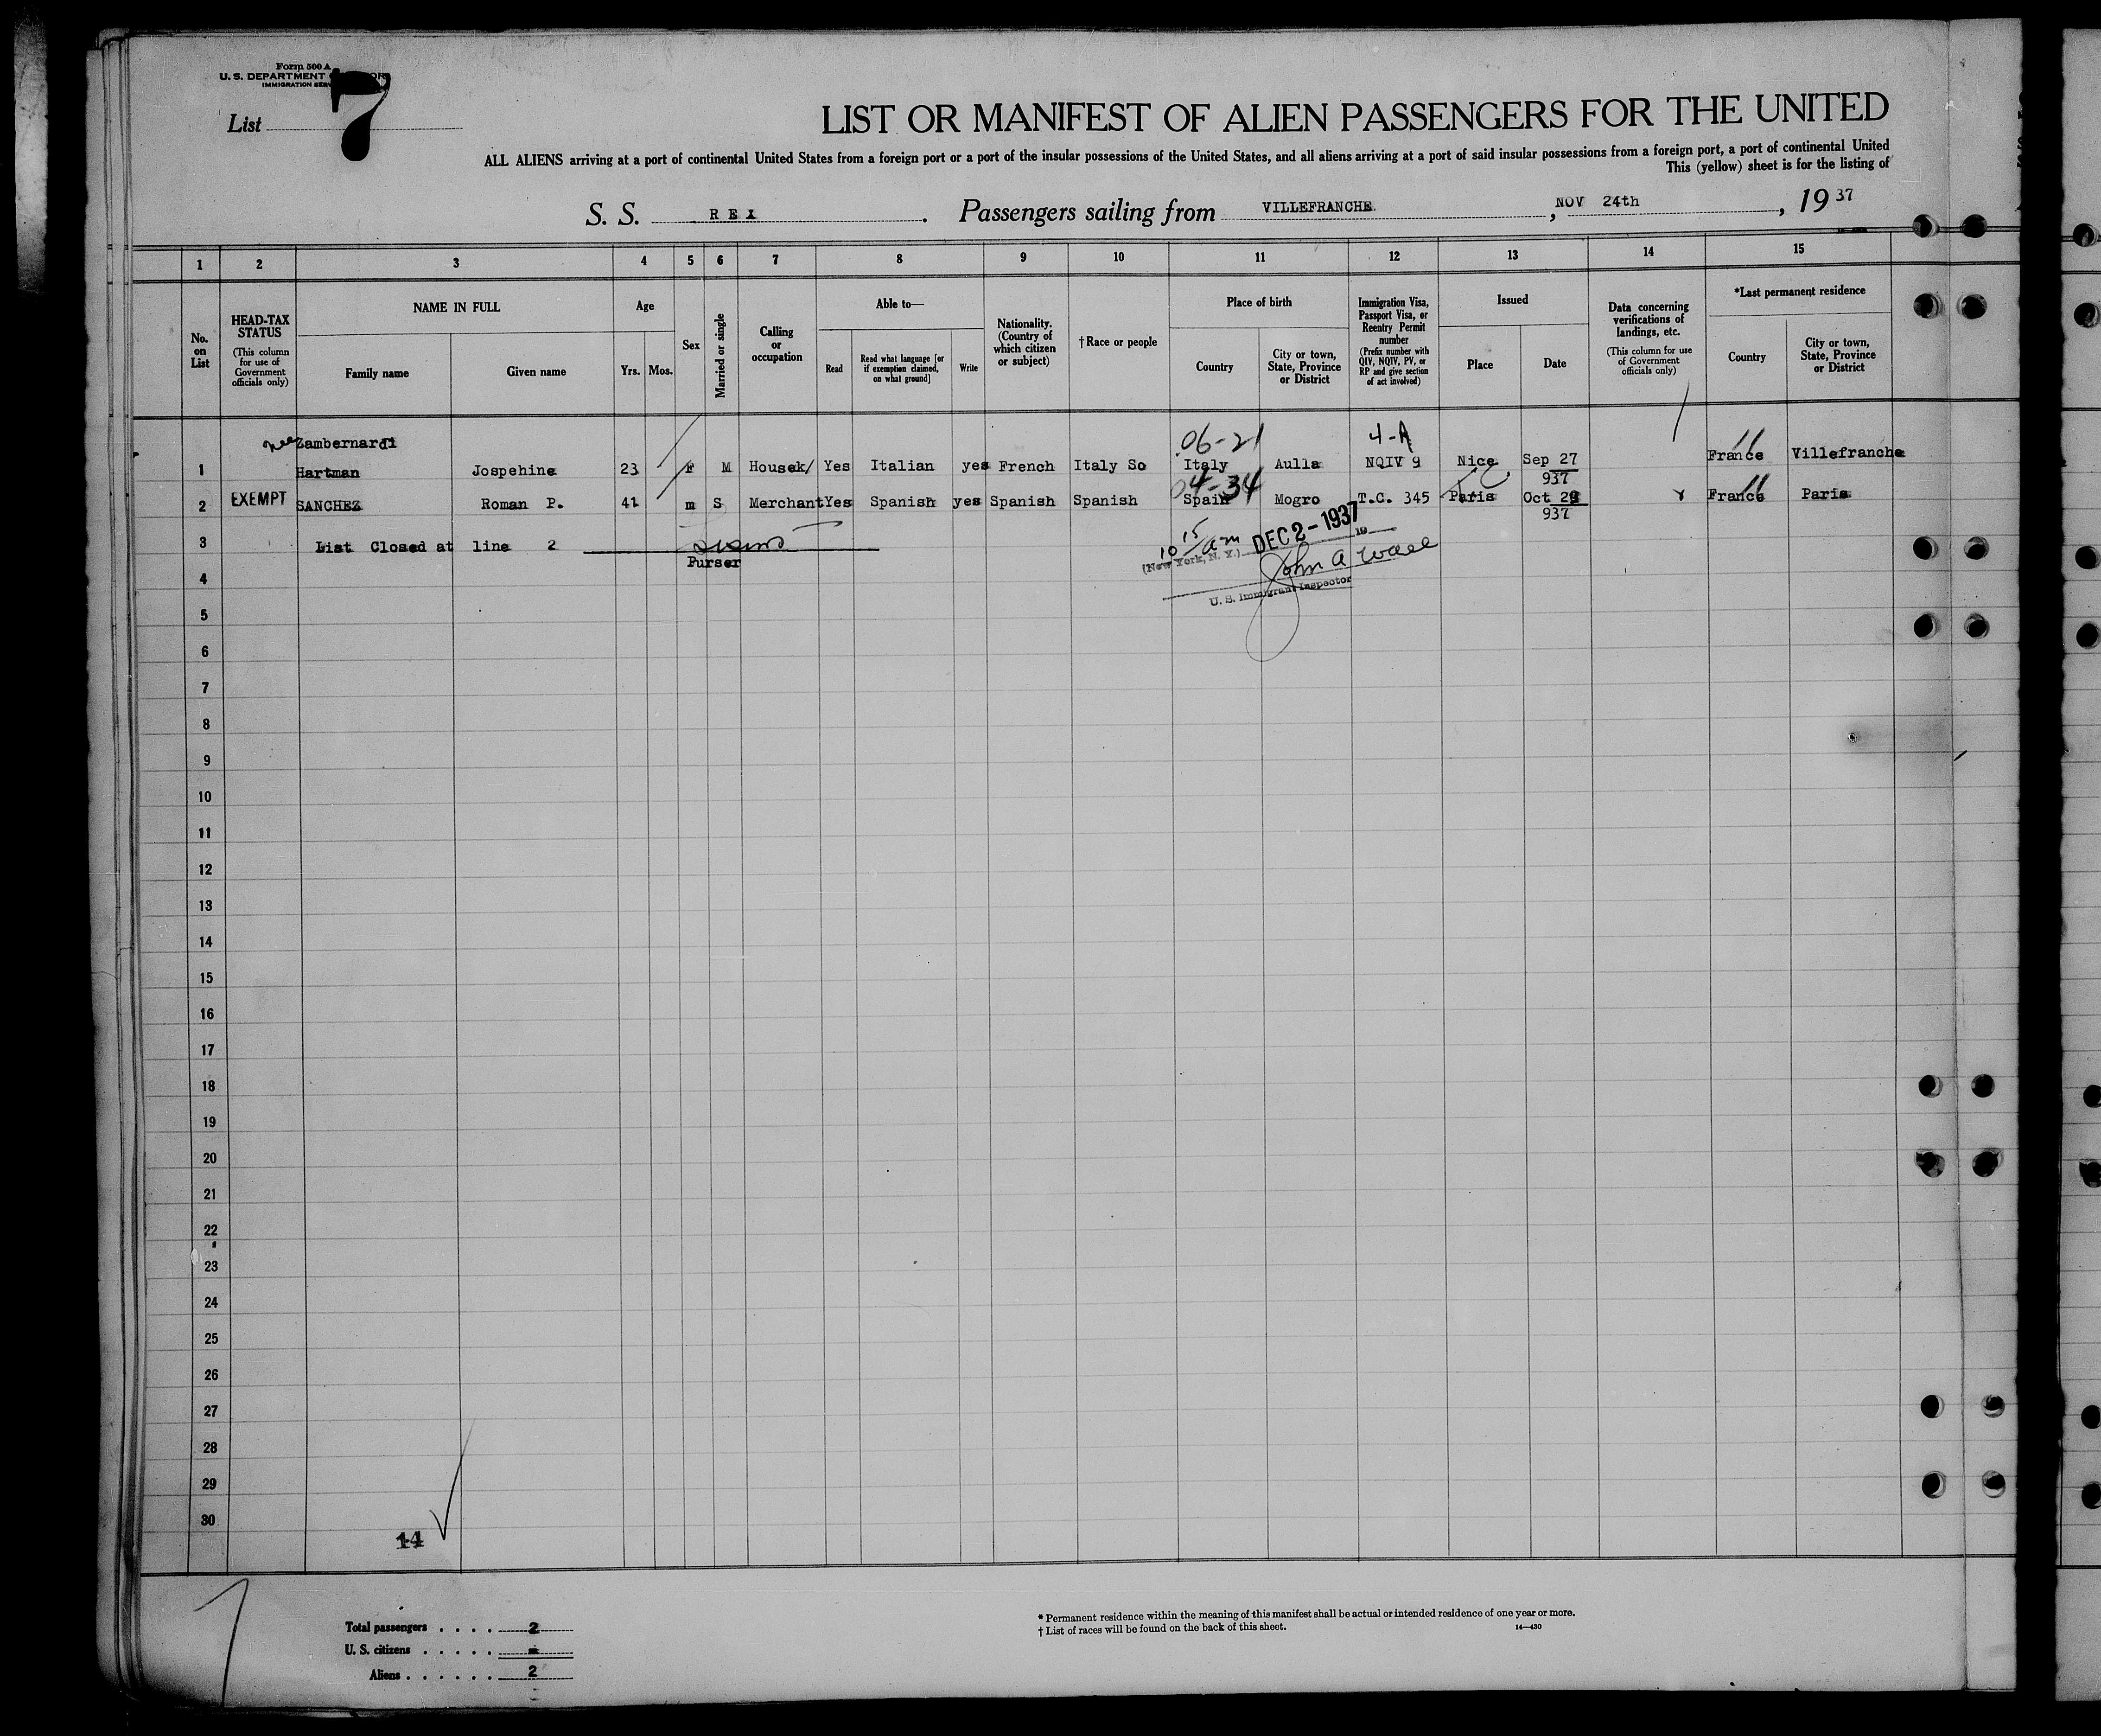 Form 500 A
U. S. DEPARTMENT
IMMIGRATION
List 7
LIST OR MANIFEST OF ALIEN PASSENGERS FOR THE UNITED
ALL ALIENS arriving at a port of continental United States from a foreign port or a port of the insular possessions of the United States, and all aliens arriving at a port of said insular possessions from a foreign port, a port of continental United
This (yellow) sheet is for the listing of
S. S. REX. Passengers sailing from VILLEFRANCHE, NOV 24th, 1937
1 2 3 4 5 6 7 8 9 10 11 12 13 14 15
No. on List
HEAD-TAX STATUS
(This column for use of Government officials only)
NAME IN FULL
Family name
Given name
Age
Yrs. Mos.
Sex
Married or single
Calling or occupation
Able to—
Read
Read what language [or if exemption claimed, on what ground]
Write
Nationality. (Country of which citizen or subject)
†Race or people
Place of birth
Country
City or town, State, Province or District
Immigration Visa, Passport Visa, or Reentry Permit number
(Prefix number with QIV, NQIV, PV, or RP and give section of act involved)
Issued
Place
Date
Data concerning verifications of landings, etc.
(This column for use of Government officials only)
*Last permanent residence
Country
City or town, State, Province or District
nee Zambernardi 06-21 4-A
1 Hartman Jospehine 23 F M Housek/ Yes Italian yes French Italy So Italy Aulla NQIV 9 Nice Sep 27 937 France Villefranche
04-34
2 EXEMPT SANCHEZ Roman P. 41 m S Merchant Yes Spanish yes Spanish Spanish Spain Mogro T.C. 345 Paris Oct 29 937 France Paris
3 List Closed at line 2
Purser
10 15/am DEC 2 - 1937 19
(New York, N. Y.)
John A Wall
U. S. Immigrant Inspector
4
5
6
7
8
9
10
11
12
13
14
15
16
17
18
19
20
21
22
23
24
25
26
27
28
29
30
14
Total passengers . . . . 2
U. S. citizens . . . . . -
Aliens . . . . . . 2
* Permanent residence within the meaning of this manifest shall be actual or intended residence of one year or more.
† List of races will be found on the back of this sheet.
14—430